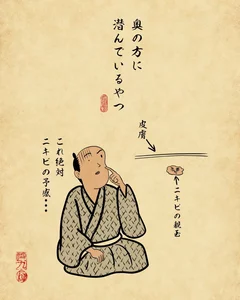 奥の方に
潜んでいるやつ
皮膚
ニキビの親玉
これ絶対
ニキビの予感・・・